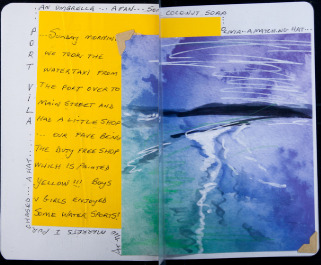 AN UMBRELLA ... A FAN ... SEA COLONY SOAP
A MATCHING HAT...
PORT VILA
... SUNDAY MORNING
WE TOOK THE
WATERTAXI FROM
THE PORT OVER TO
MAIN STREET AND
HAD A LITTLE SHOP
... OUR FAVE BEING
THE DUTY FREE SHOP
WHICH IS PAINTED
YELLOW !!! BOYS
& GIRLS ENJOYED
SOME WATER SPORTS!
A HAT...
MARKETS I